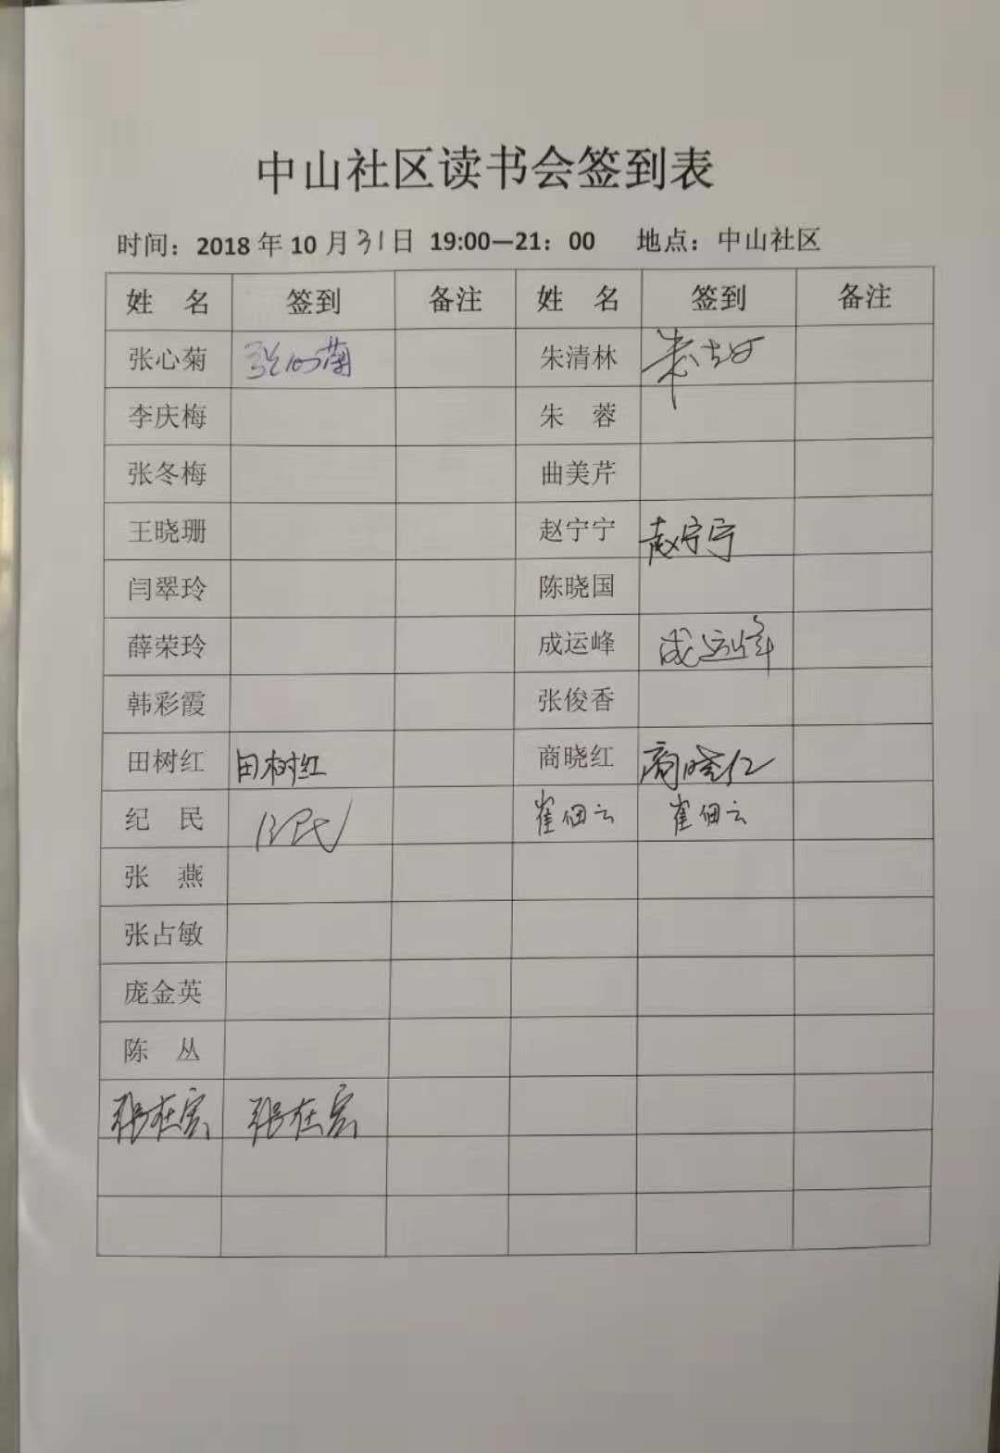 中山社区读书会签到表
时间：2018年10月31日 19:00—21：00 地点：中山社区
姓 名 签到 备注 姓 名 签到 备注
张心菊 张心菊 朱清林
李庆梅 朱 蓉
张冬梅 曲美芹
王晓珊 赵宁宁 赵宁宁
闫翠玲 陈晓国
薛荣玲 成运峰 成运峰
韩彩霞 张俊香
田树红 田树红 商晓红 商晓红
纪 民 纪民 崔佃云 崔佃云
张 燕
张占敏
庞金英
陈 丛
张在宾 张在宾